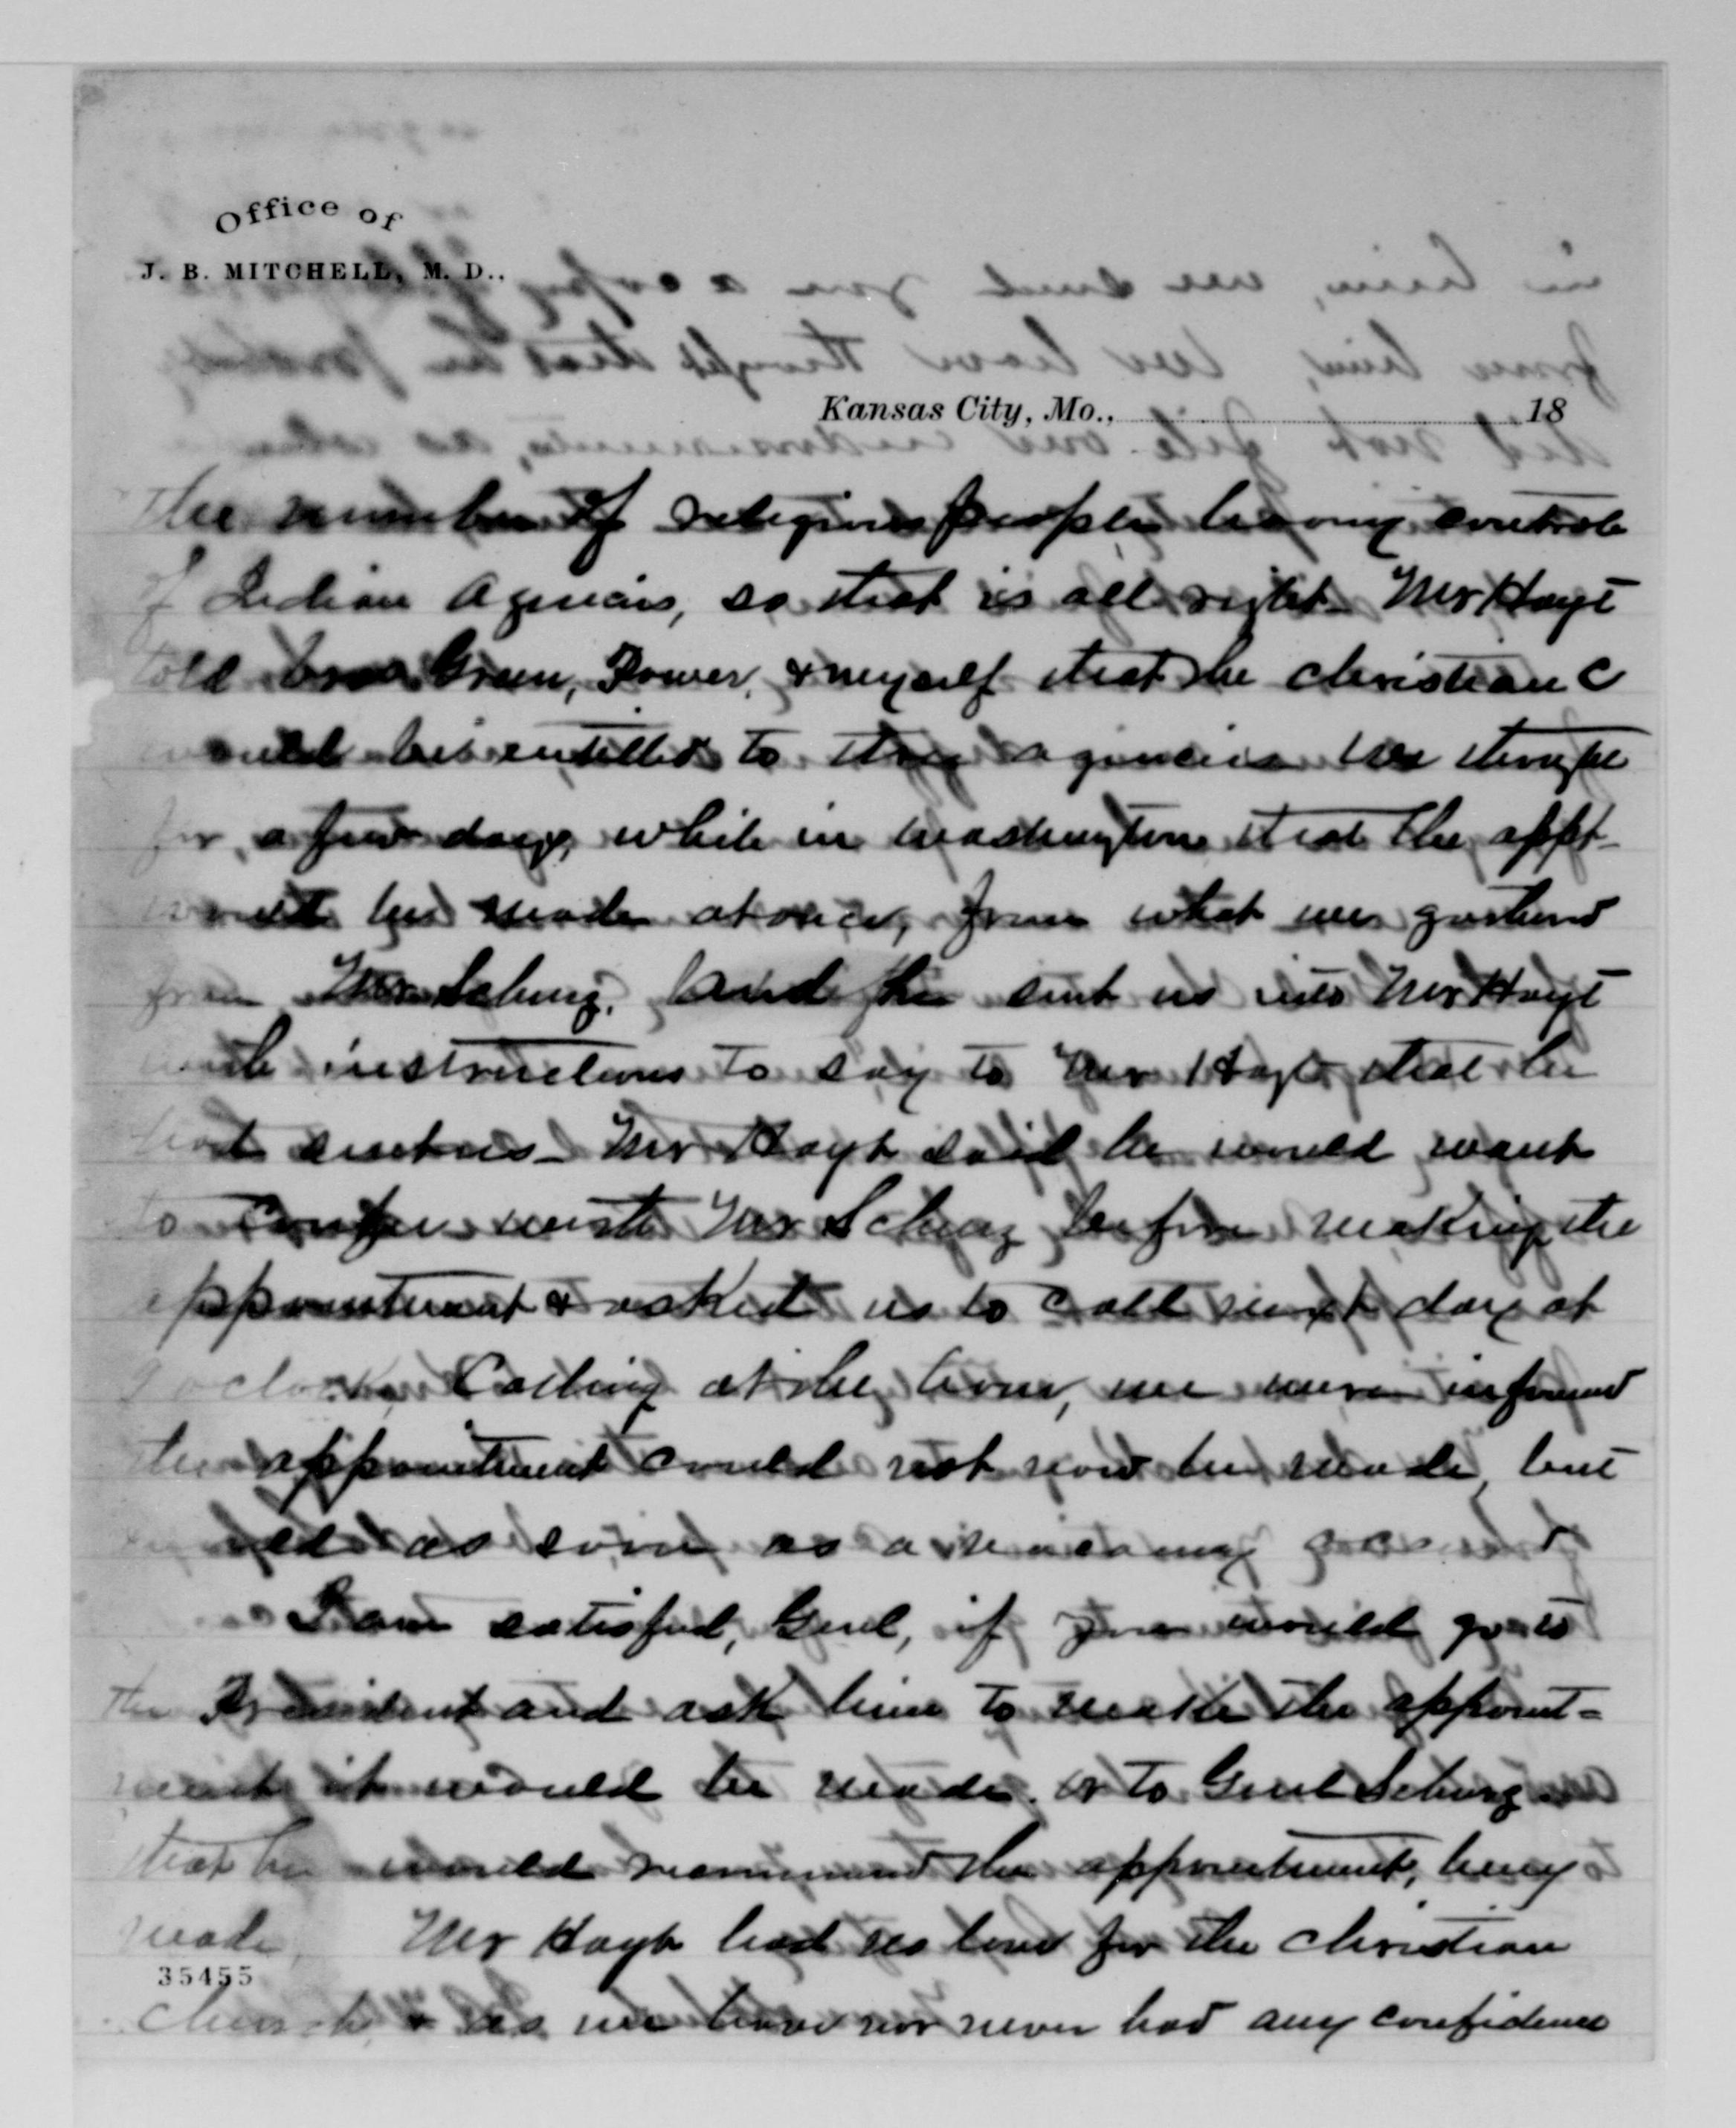 Office of
J. B. MITCHELL, M. D.,
Kansas City, Mo., 18
The number of religious people having controle
of Indian Agencies, so that is all right. Mr Hoyt
told Bros Green, Power, & myself that the Christian C
would be entitled to agencies We thought
for a few days, while in Washington that the appt-
would be made at once, from what we gathered
from Mr Schurz, and he sent us into Mr Hoyt
with instructions to say to Mr Hoyt that he
had sent us - Mr Hoyt said he would want
to confer with Mr Schurz before making the
appointment & asked us to call next day at
oclock, Calling at the hour, we were informed
the appointment could not now be made, but
as soon as a vacancy
I am satisfied, Genl, if you would go to
the President and ask him to make the appoint-
ment it would be made. or to Genl Schurz
that he would recommend the appointment, being
made, Mr Hoyt had no love for the Christian
35455
church & as we have nor never had any confidence